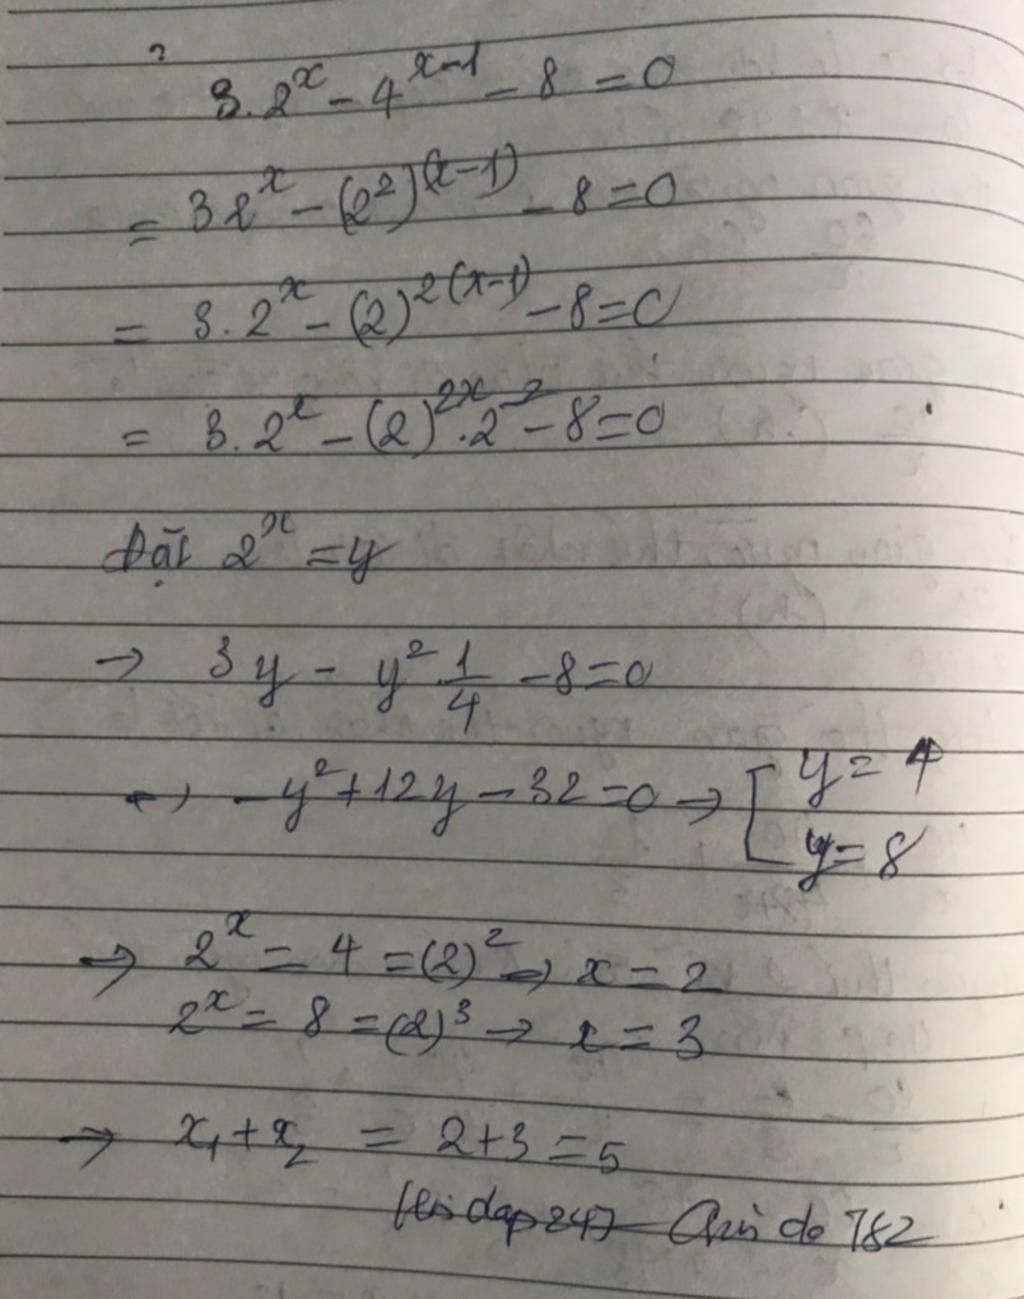 ?
3.2^x - 4^(x-1) - 8 = 0
= 3 2^x - (2^2)^(x-1) - 8 = 0
= 3.2^x - (2)^2(x-1) - 8 = 0
= 3.2^x - (2)^2x . 2^-2 - 8 = 0
Đặt 2^x = y
→ 3y - y^2 . 1/4 - 8 = 0
↔ -y^2 + 12y - 32 = 0 → [ y = 4
y = 8
→ 2^x = 4 = (2)^2 → x = 2
2^x = 8 = (2)^3 → x = 3
→ x₁ + x₂ = 2 + 3 = 5
Hoidap247